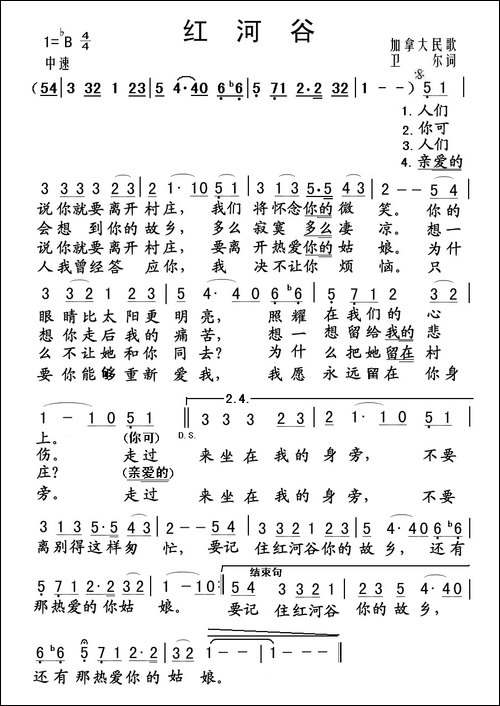 红河谷
1=♭B 4/4
中速
加拿大民歌
卫 尔词
(54 | 3 32 1 23 | 5 4·40 6♭6 | 5 71 2·2 32 | 1 - -) 51 |
1. 人们
2. 你可
3. 人们
4. 亲爱的
3 33 3 23 | 2 1·10 51 | 31 35·5 43 | 2 - - 54 |
说你就要离开村庄，我们将怀念你的微笑。你的
会想到你的故乡，多么寂寞多么凄凉。想一
说你就要离开村庄，要离开热爱你的姑娘。为什
人我曾经答应你，我决不让你烦恼。只
3 32 1 23 | 5 4·40 6♭6 | 5 71 2 32 |
眼睛比太阳更明亮，照耀在我们的心
想你走后我的痛苦，想一想留给我的悲
么不让她和你同去？为什么把她留在村
要你能够重新爱我，我愿永远留在你身
1 - 10 51 | 2.4. 33 3 23 | 2 1·10 51 |
D.S.
上。(你可)
伤。走过来坐在我的身旁，不要
庄？(亲爱的)
旁。走过来坐在我的身旁，不要
31 35·5 43 | 2 - - 54 | 3 32 1 23 | 5 4·40 6♭6 |
离别得这样匆忙，要记住红河谷你的故乡，还有
5 71 2·2 32 | 1 - 10 :| 结束句 54 3 32 1 23 | 5 4·40 |
那热爱的你姑娘。要记住红河谷你的故乡，
6♭6 5 71 2·2 32 | 1 - - - | 1 - - - ‖
还有那热爱你的姑娘。